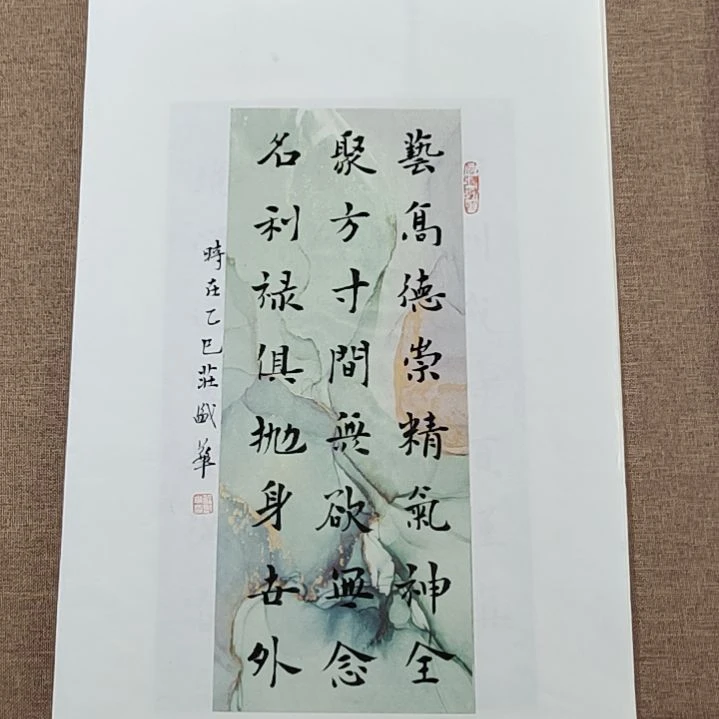 藝高德崇精氣神全
聚方寸間無欲無念
名利禄俱抛身世外
時在乙巳莊盛華